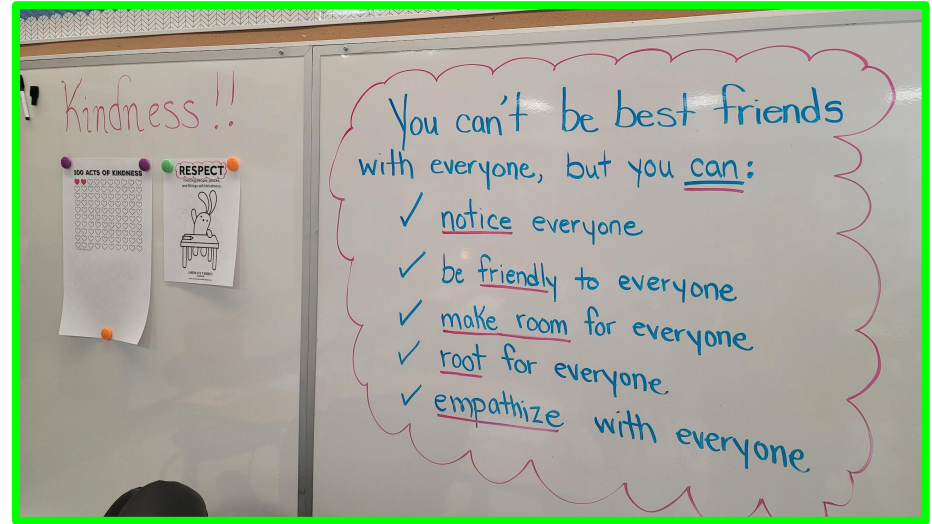 Kindness!!
100 ACTS OF KINDNESS
RESPECT
You can't be best friends
with everyone, but you can:
✓ notice everyone
✓ be friendly to everyone
✓ make room for everyone
✓ root for everyone
✓ empathize with everyone